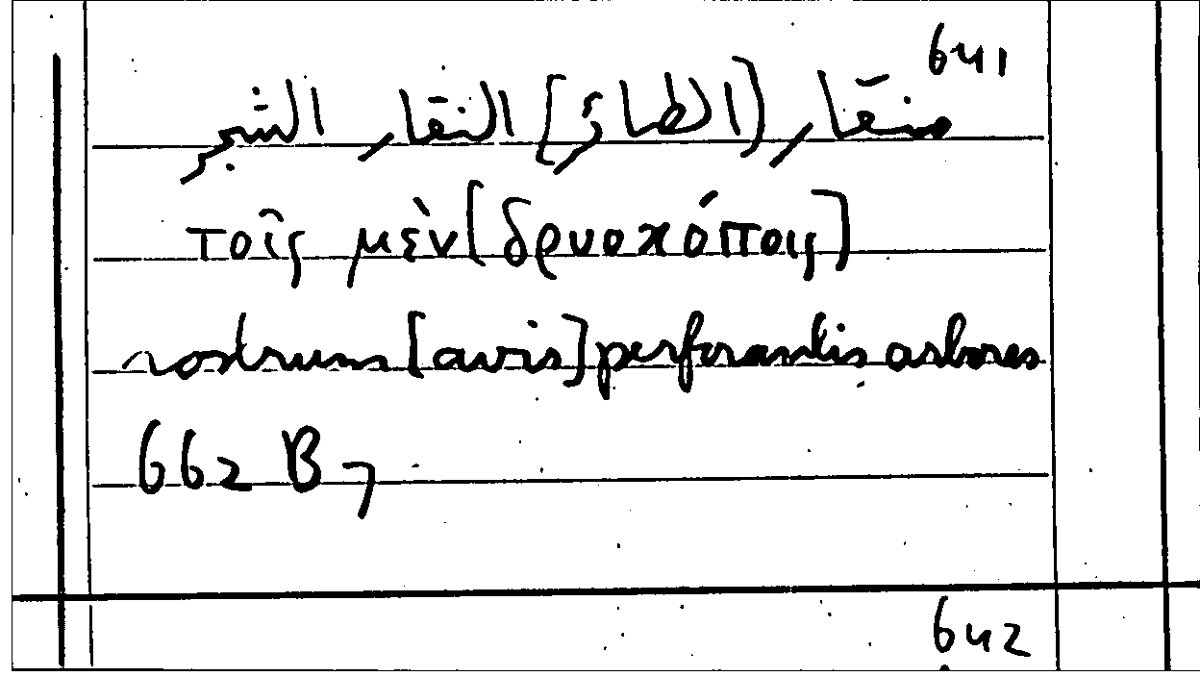 641
منقار [الطائر] النقار الشجر
τοῖς μὲν [δρυοκόποις]
rostrum [avis] perforantis arbores
662 B 7
642